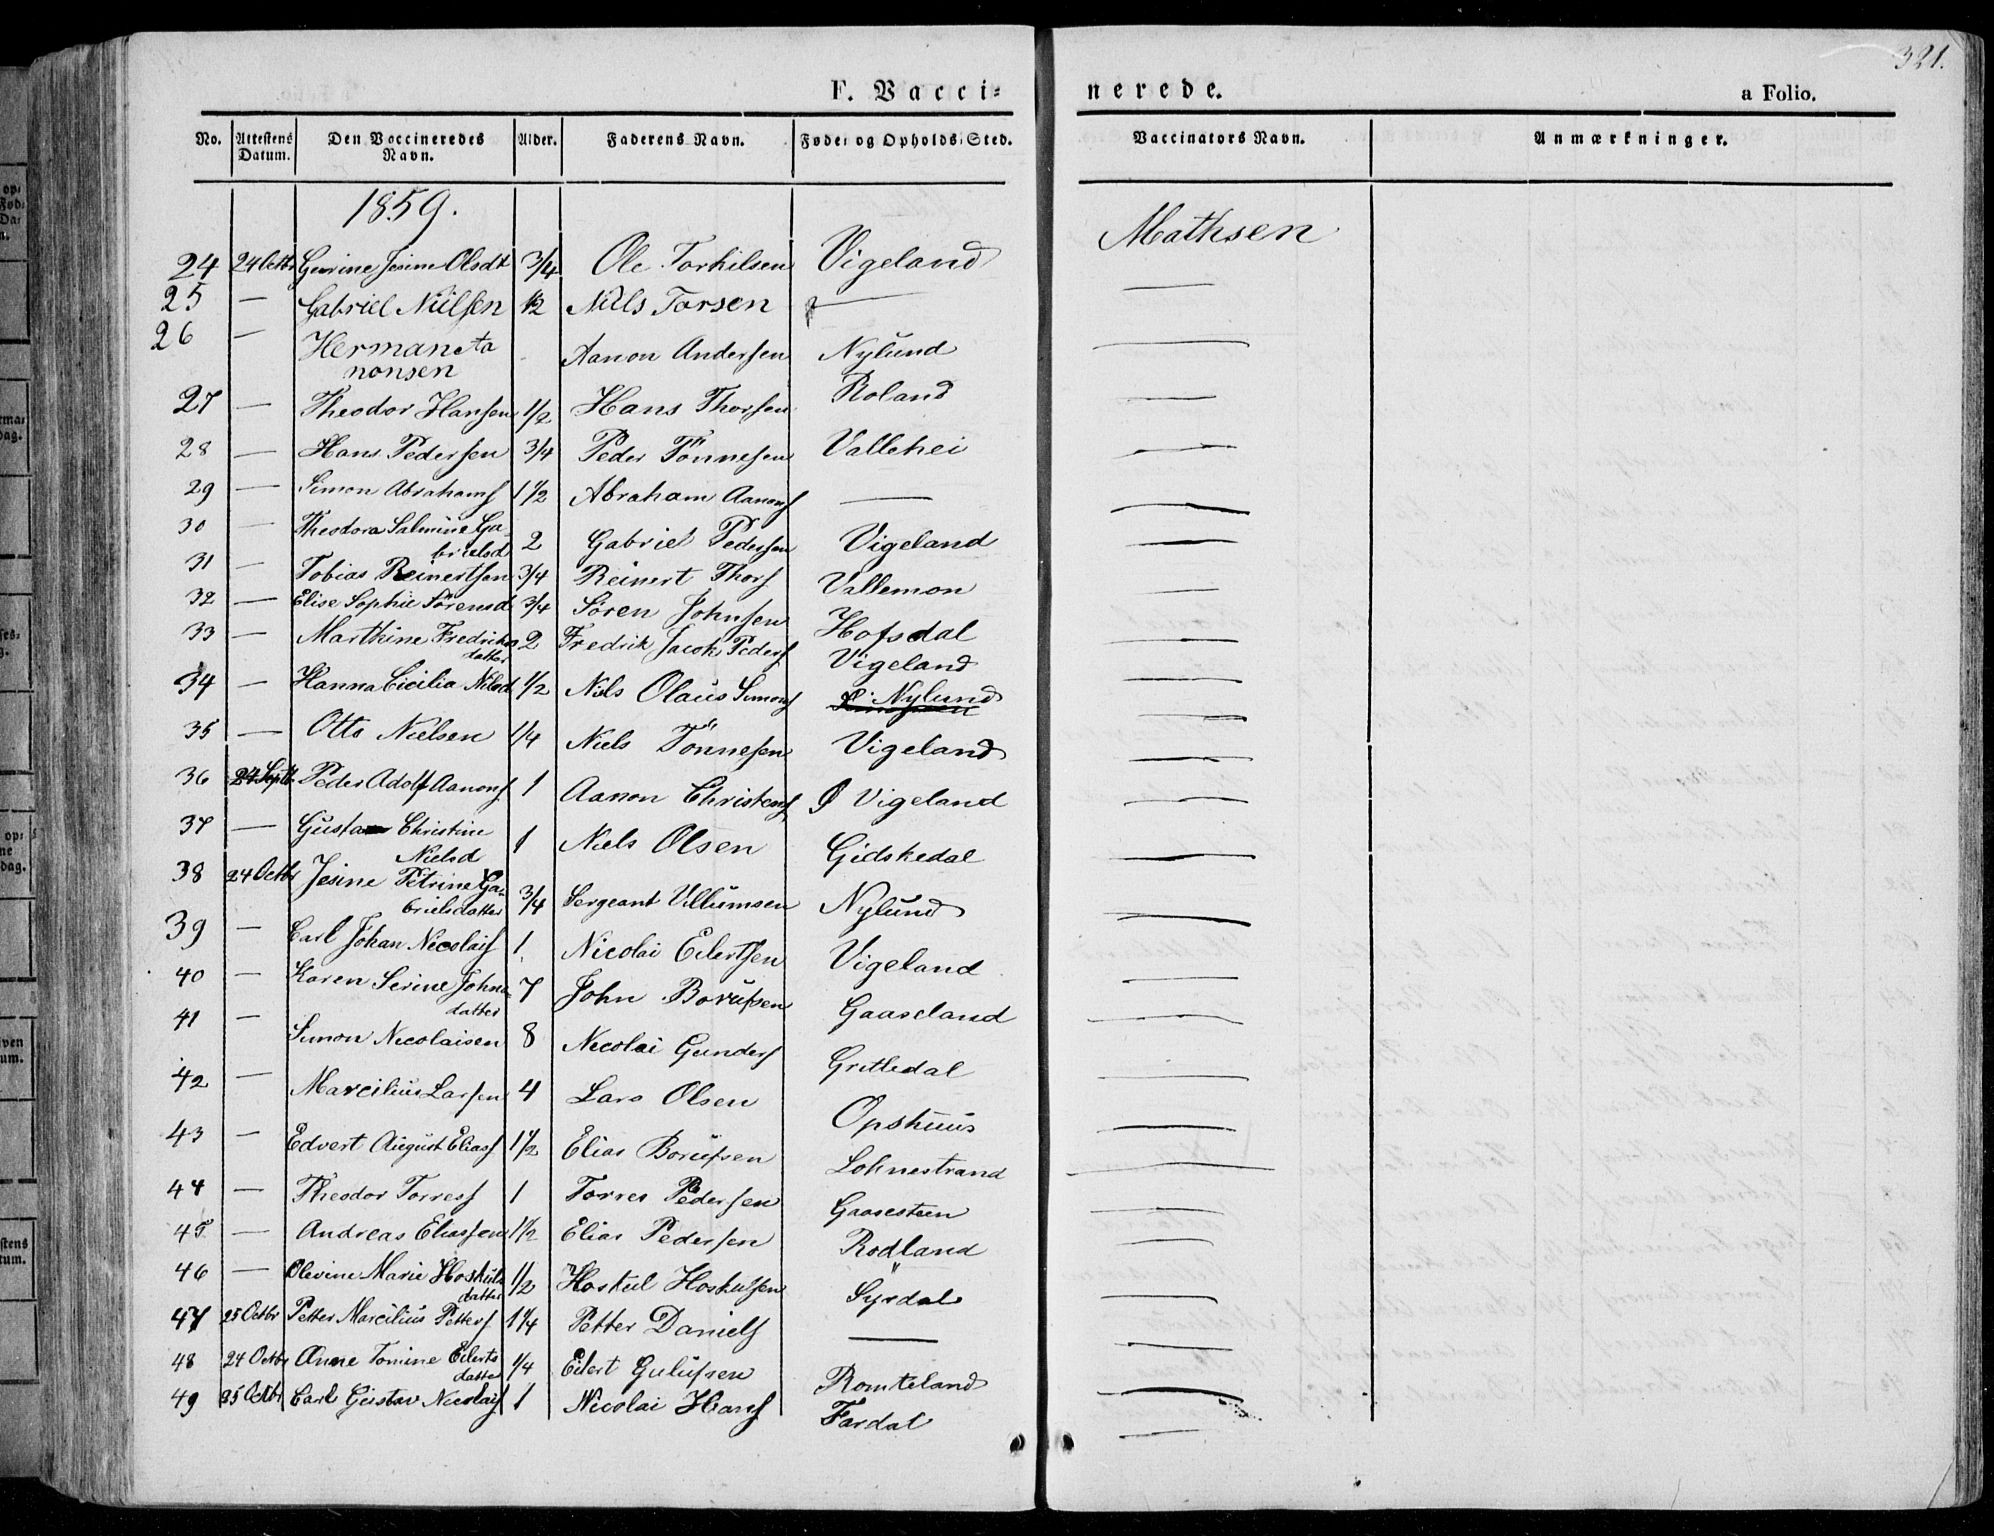 321.
F. Vacci= nerede. a Folio.
No. Attestens Datum. Den Vaccineredes Navn. Alder. Faderens Navn. Føde= og Opholds=Sted. Vaccinators Navn. Anmærkninger.
1859.
24 24 Octbr Gurine Jesine Olsdt 3/4 Ole Torkilsen Vigeland Mathsen
25 — Gabriel Nielsen 1/2 Niels Torsen — —
26 — Herman Aa Aanon Andersen Nylund —
nonsen
27 — Theodor Hansen 1/2 Hans Thorsen Roland —
28 — Hans Pedersen 3/4 Peder Tönnesen Vallehei —
29 — Simon Abrahams 1 1/2 Abraham Aanons — —
30 — Theodora Salmine Ga 2 Gabriel Pedersen Vigeland —
brielsd
31 — Tobias Reinertsen 3/4 Reinert Thors Vallemon —
32 — Elise Sophie Sörensd 3/4 Sören Johnsen Hofsdal —
33 — Marthine Fredriks 2 Fredrik Jacob Peders Vigeland —
datter
34 — Hanna Cicilia Nilsd 1/2 Niels Olaus Simons Nylund —
35 — Otto Nielsen 1/4 Niels Tönnesen Vigeland —
36 24 Septbr Peder Adolf Aanons 1 Aanon Christens Ø Vigeland —
37 — Gusta Christine 1 Niels Olsen Gidskedal —
Nielsd
38 24 Octbr Jesine Petrine Ga- 3/4 Sergeant Villumsen Nylund —
brielsdatter
39 — Carl Johan Nicolais 1 Nicolai Eilertsen Vigeland —
40 — Karen Serine Johns 7 John Borufsen Gaaseland —
datter
41 — Simon Nicolaisen 8 Nicolai Gunders Grittedal —
42 — Marcilius Larsen 4 Lars Olsen Opshuus —
43 — Edvert August Elias 1 1/2 Elias Borufsen Lohnestrand —
44 — Theodor Torress 1 Torres Pedersen Gaasesteen —
45 — Andreas Eliassen 1 1/2 Elias Pedersen Rødland —
46 — Olevine Marie Hoskuls 1/2 Hoskul Hoskulsen Syrdal —
datter
47 25 Octbr Petter Marcilius Petters 1 1/4 Petter Daniels — —
48 24 Octbr Anne Tomine Eilerts 1/4 Eilert Gulufsen Romteland —
datter
49 25 Octbr Carl Gustav Nicolais 1 Nicolai Hans Fardal —